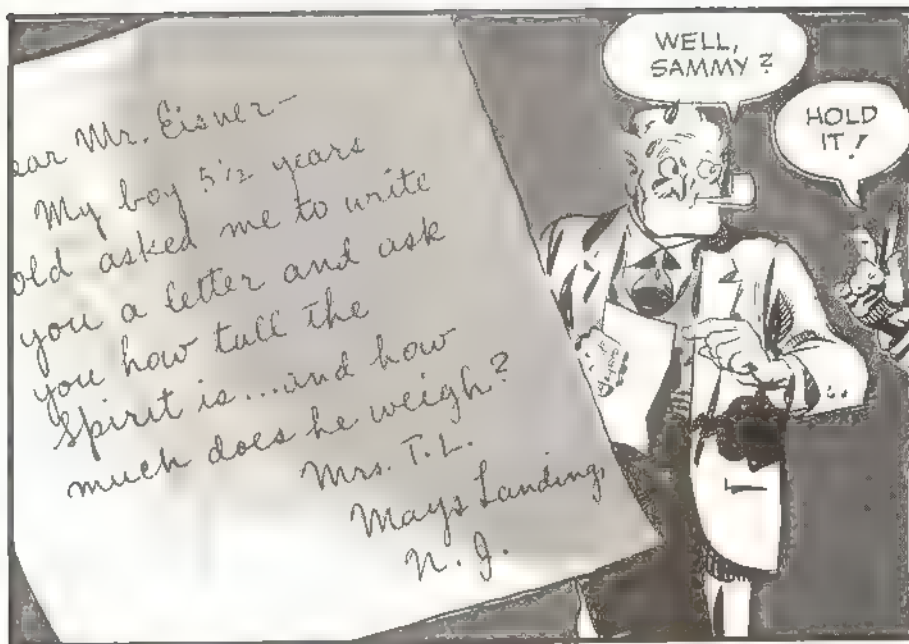 ear Mr. Eisner—
My boy 5½ years
old asked me to write
you a letter and ask
you how tall the
Spirit is...and how
much does he weigh?
Mrs. T.L.
Mays Landing,
N. J.
WELL,
SAMMY?
HOLD
IT!